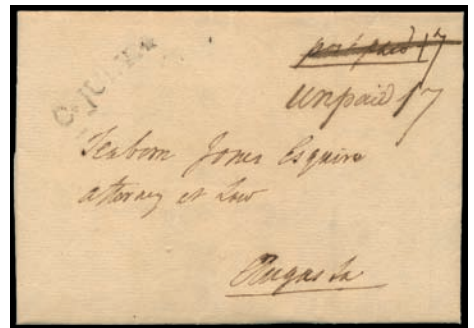 post paid 17
unpaid 17
Seaborn Jones Esquire
attorney at Law
Augusta